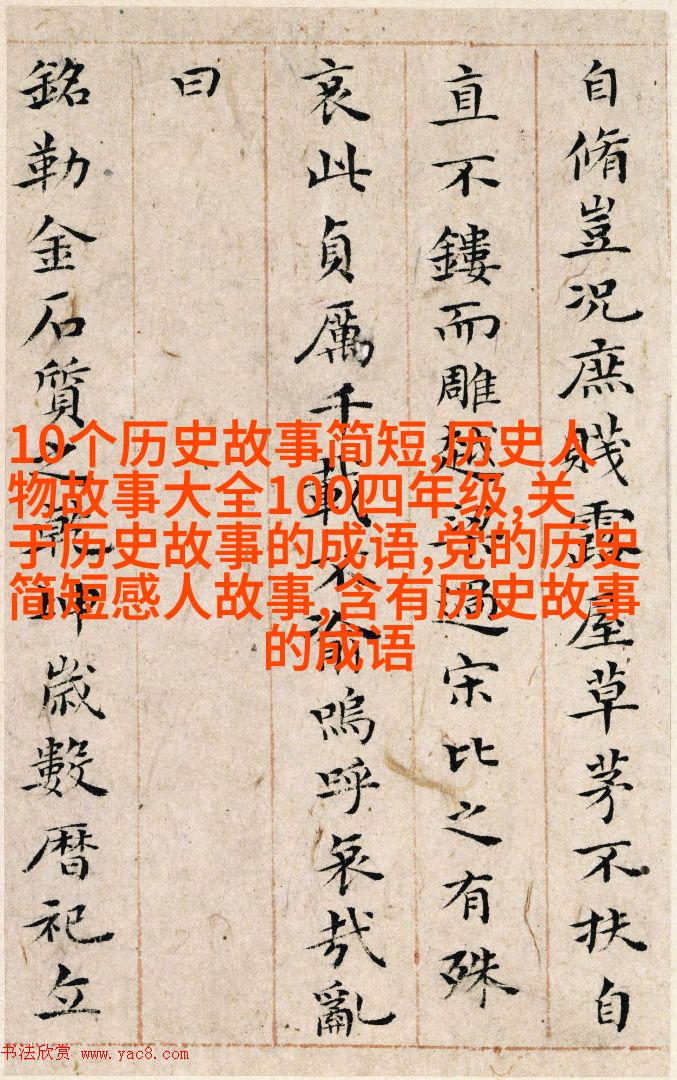 自脩豈況庶賤露屋草茅不扶自
直不鏤而雕越梁過宋比之有殊
哀此貞厲千載不渝嗚呼哀哉亂
曰
銘勒金石質之乾坤歲數曆祀立
10个历史故事简短,历史人
物故事大全100四年级,关
于历史故事的成语,党的历史
简短感人故事,含有历史故事
的成语
书法欣赏 www.yac8.com